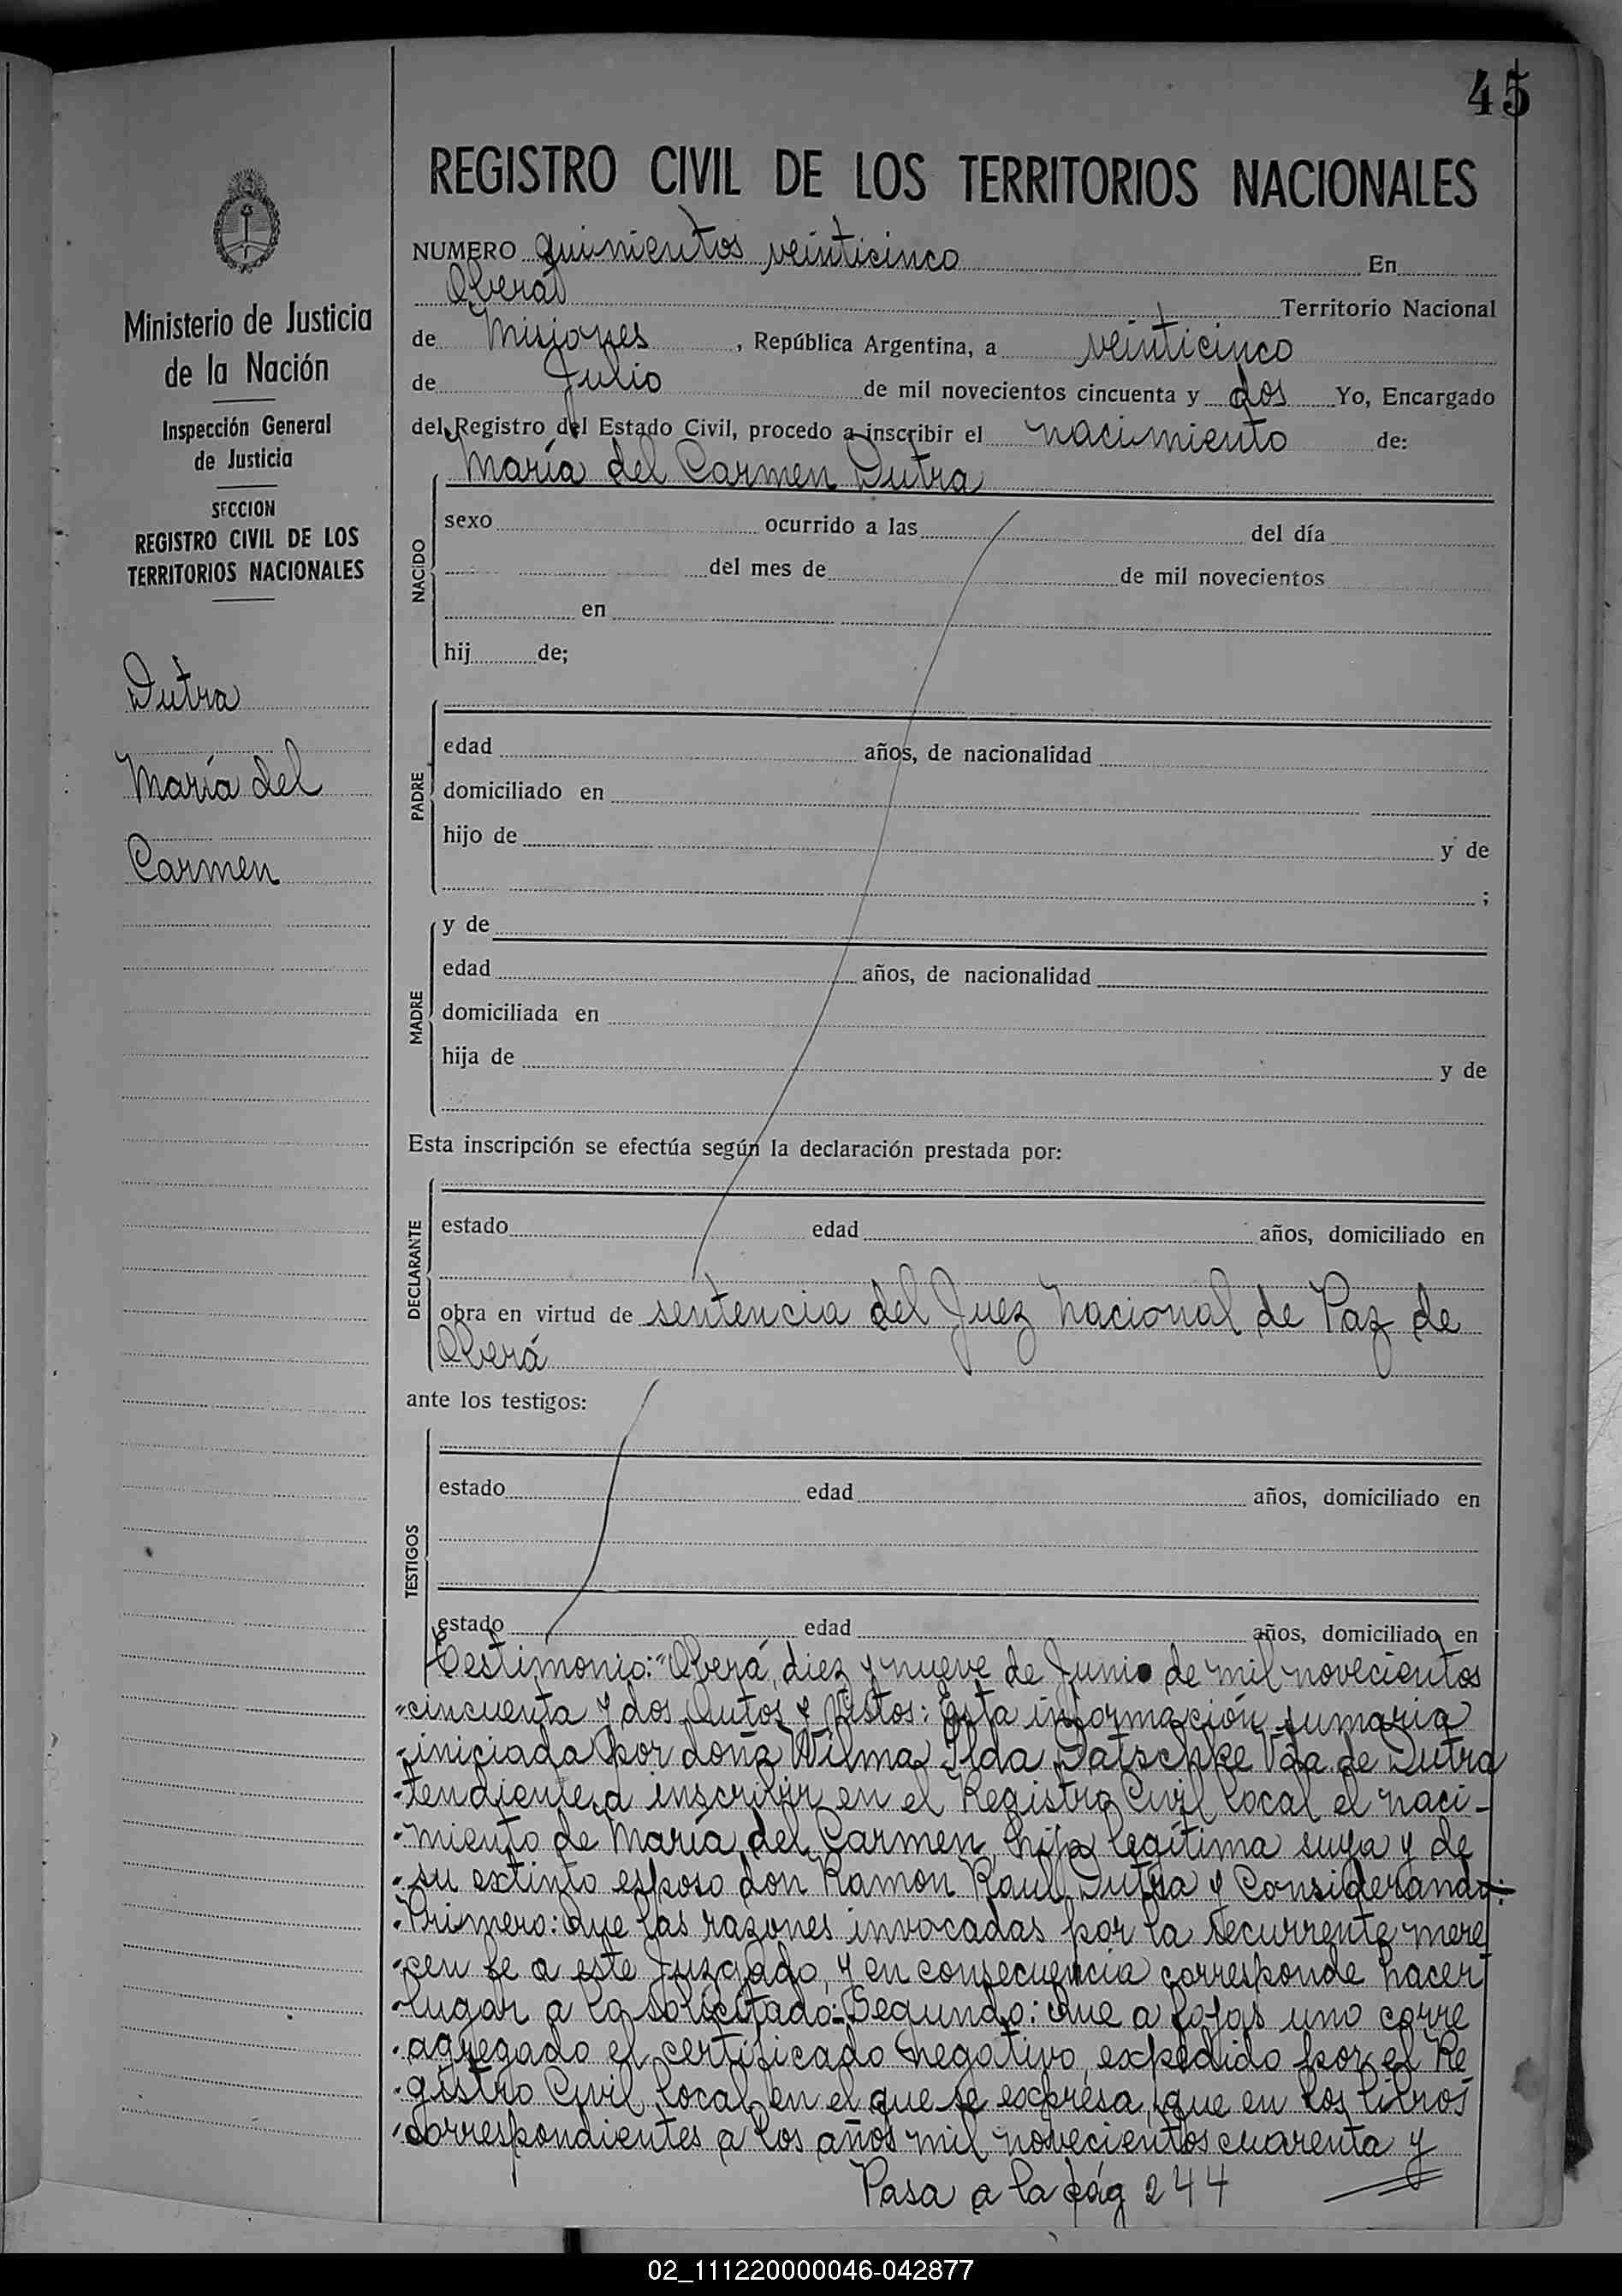 45
REGISTRO CIVIL DE LOS TERRITORIOS NACIONALES
NUMERO quinientos veinticinco En
Oberá Territorio Nacional
de Misiones , República Argentina, a veinticinco
de Julio de mil novecientos cincuenta y dos Yo, Encargado
del Registro del Estado Civil, procedo a inscribir el nacimiento de:
María del Carmen Dutra
Ministerio de Justicia
de la Nación
Inspección General
de Justicia
SECCION
REGISTRO CIVIL DE LOS
TERRITORIOS NACIONALES
Dutra
María del
Carmen
NACIDO
sexo ocurrido a las del día
del mes de de mil novecientos
en
hij de;
PADRE
edad años, de nacionalidad
domiciliado en
hijo de y de
;
MADRE
y de
edad años, de nacionalidad
domiciliada en
hija de y de
Esta inscripción se efectúa según la declaración prestada por:
DECLARANTE
estado edad años, domiciliado en
obra en virtud de sentencia del Juez Nacional de Paz de
Oberá
ante los testigos:
TESTIGOS
estado edad años, domiciliado en
estado edad años, domiciliado en
Testimonio: "Oberá, diez y nueve de Junio de mil novecientos
"cincuenta y dos Autos y Vistos: Esta información sumaria
"iniciada por doña Wilma Ilda Datschke Vda. de Dutra
"tendiente a inscribir en el Registro Civil local el naci-
"miento de María del Carmen, hija legítima suya y de
"su extinto esposo don Ramon Raul Dutra y Considerando:
"Primero: Que las razones invocadas por la recurrente mere
"cen fe a este Juzgado, y en consecuencia corresponde hacer
"lugar a lo solicitado:-Segundo: Que a fojas uno corre
"agregado el certificado negativo, expedido por el Re
"gistro Civil local en el que se expresa, que en los libros
"correspondientes a los años mil novecientos cuarenta y
Pasa a la pág 244
02_111220000046-042877